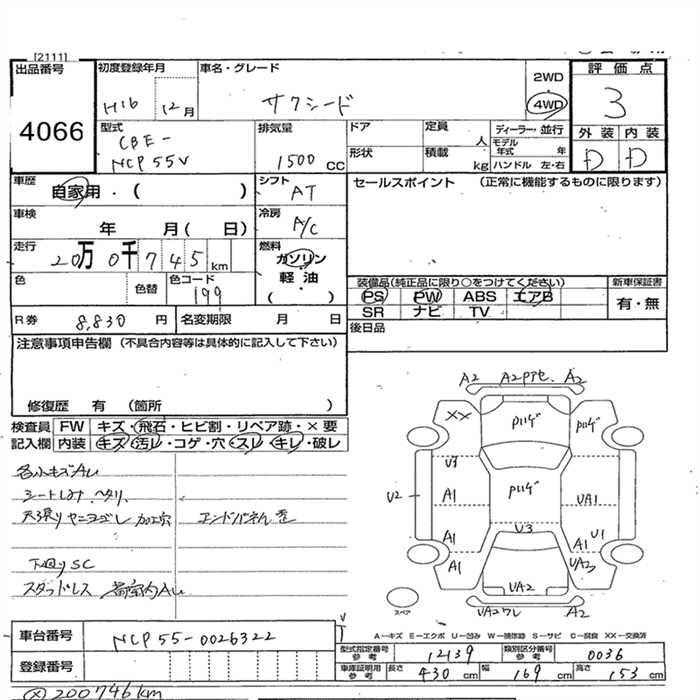 [2111]
出品番号
4066
初度登録年月
H16
12月
車名・グレード
サクシード
2WD
4WD
評価点
3
外装 内装
D D
型式
CBE-
NCP55V
排気量
1500 CC
ドア
定員
人
形状
積載
kg
ディーラー・並行
モデル年式 年
ハンドル 左・右
車歴
自家用・( )
シフト
AT
セールスポイント (正常に機能するものに限ります)
車検
年 月( 日)
冷房
A/C
走行
20万0千745km
燃料
ガソリン
軽油
( )
色
色替
色コード
199
装備品(純正品に限り○をつけてください)
PS PW ABS エアB
SR ナビ TV
新車保証書
有・無
R券
8,830円
名変期限 月 日
後日品
注意事項申告欄 (不具合内容等は具体的に記入して下さい)
修復歴 有 (箇所 )
検査員 FW キズ・飛石・ヒビ割・リペア跡・×要
記入欄 内装 キズ・汚レ・コゲ・穴・スレ・キレ・破レ
各小キズAu
シートしみ ヘタリ
天張りヤニヨゴレ 加工穴
下廻りSC
スタッドレス
A2 A2 A2
XX
V3
U2
A1
A1
A1
U3
UA1
U1
A1
UA3
UA2
UA2ワレ A2
スペア
A-キズ E-エクボ U-凹み W-補修跡 S-サビ C-腐食 XX-交換済
車台番号
NCP55-0026322
登録番号
型式指定番号
参考
12139
類別区分番号
参考
0036
車庫証明用
参考
長さ 430 cm 幅 169 cm 高さ 153 cm
(X) 200746km